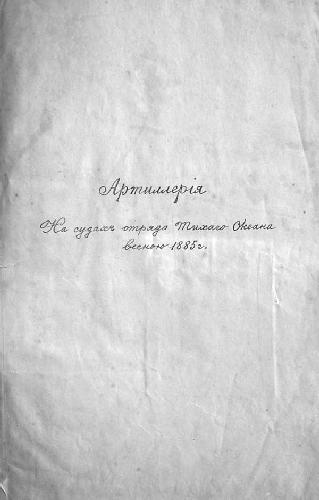 Артиллерія
На судахъ отряда Тихаго Океана
весною 1885 г.